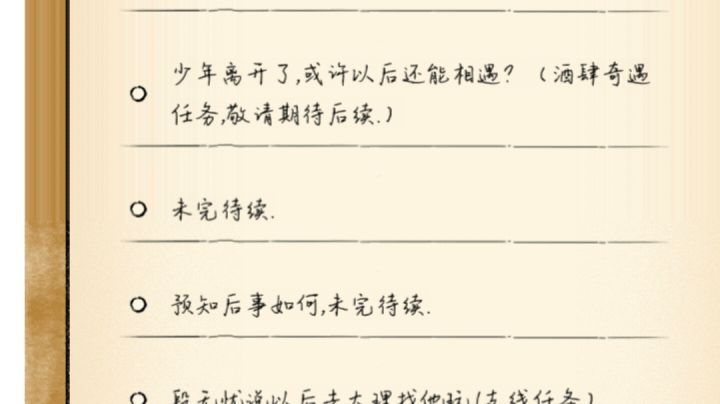 少年离开了,或许以后还能相遇？（酒肆奇遇
任务,敬请期待后续.）
未完待续.
预知后事如何,未完待续.
段无忧说以后去大理找他玩(支线任务)